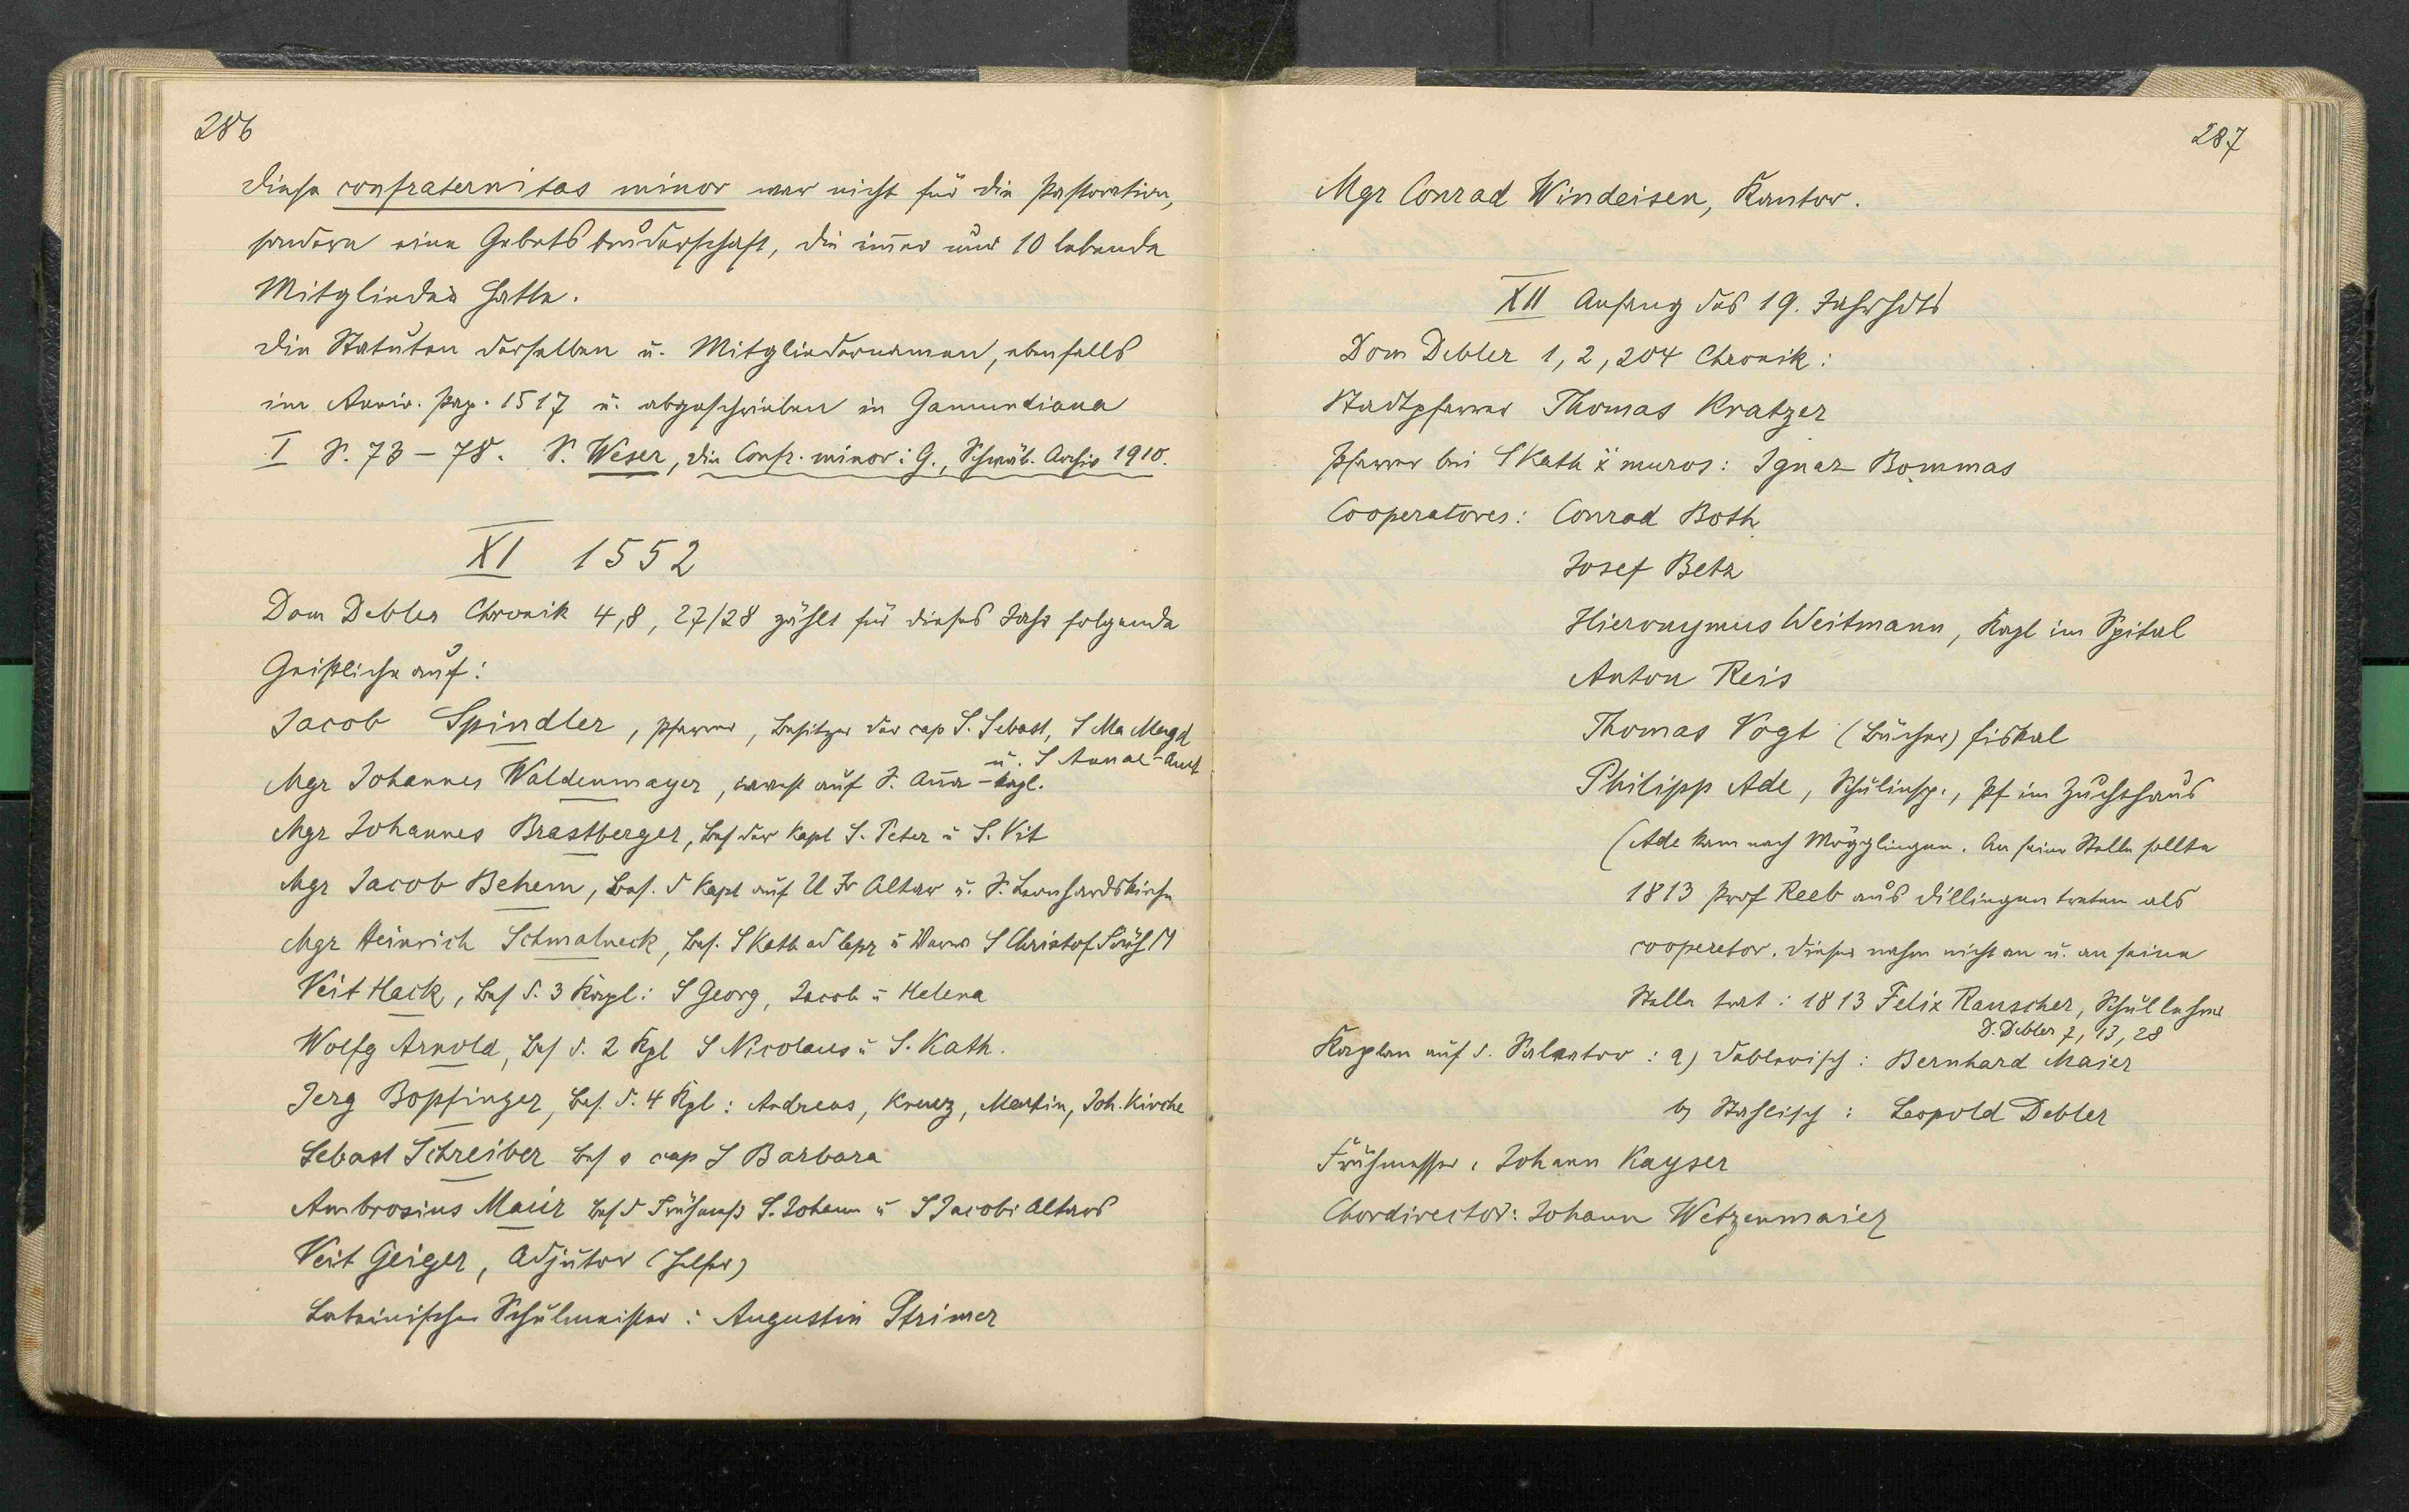 286
Diese confraternitas minor war nicht für die Pastoration,
sondern eine Gebetsbruderschaft, die im̄er nur 10 lebende
Mitglieder hatte.
Die Statuten derselben u. Mitgliedernamen, ebenfalls
im Anniv. Pag. 1517 u. abgeschrieben in Gamundiana
I S. 73-78. S. Weser, die Confr. minor i. G., Schwäb. Archiv 1910.
XI 1552
Dom Debler Chronik 4,8, 27/28 zählt für dieses Jahr folgende
Geistliche auf:
Jacob Spindler, Pfarrer, Besitzer der cap S. Sebast, S Ma Magd
u. S Annae-Amt
Mgr Johannes Waldenmayer, auf S. Anna-Kapl.
Mgr Johannes Brastberger, Bes der Kapl S. Peter u S. Vit
Mgr Jacob Behem, Bes. d Kapl auf U Fr Altar u. S. Leonhardskirche
Mgr Heinrich Schmalneck, Bes. S Kath ad lepr u S Christof
Veit Hack, Bes d. 3 Kapl: S Georg, Jacob u Helena
Wolfg Arnold, Bes d. 2 Kpl S Nicolaus u S. Kath.
Jerg Bopfinger, Bes. d. 4 Kpl: Andreas, Kreuz, Martin, Joh. Kirche
Sebast Schreiber Bes d cap S Barbara
Ambrosius Maier Bes d Frühmeß S. Johann u S Jacobi Altars
Veit Geiger, Adjutor (Helfer)
Lateinischer Schulmeister: Augustin Strimer
287
Mgr Conrad Windeisen, Kantor.
XII Anfang des 19. Jahrhdts
Dom Debler 1, 2, 204 Chronik:
Stadtpfarrer Thomas Kratzer
Pfarrer bei S Kath x muros: Ignaz Bommas
Cooperatores: Conrad Both
Josef Betz
Hieronymus Weitmann, Kapl im Spital
Anton Reis
Thomas Vogt (Bücher) fiskal
Philipp Ade, Schulinsp., Pf im Zuchthaus
(Ade kam nach Mögglingen. An seine Stelle sollte
1813 Prof Reeb aus Dillingen treten als
cooperator. Dieser nahm nicht an u. an seine
Stelle trat: 1813 Felix Rauscher, Schullehrer
D. Debler 7, 13, 28
Kaplan auf d. Salvator: a) Deblerisch: Bernhard Maier
b) Stahlisch: Leopold Debler
Frühmesser: Johann Kayser
Chordirector: Johann Wetzenmaier